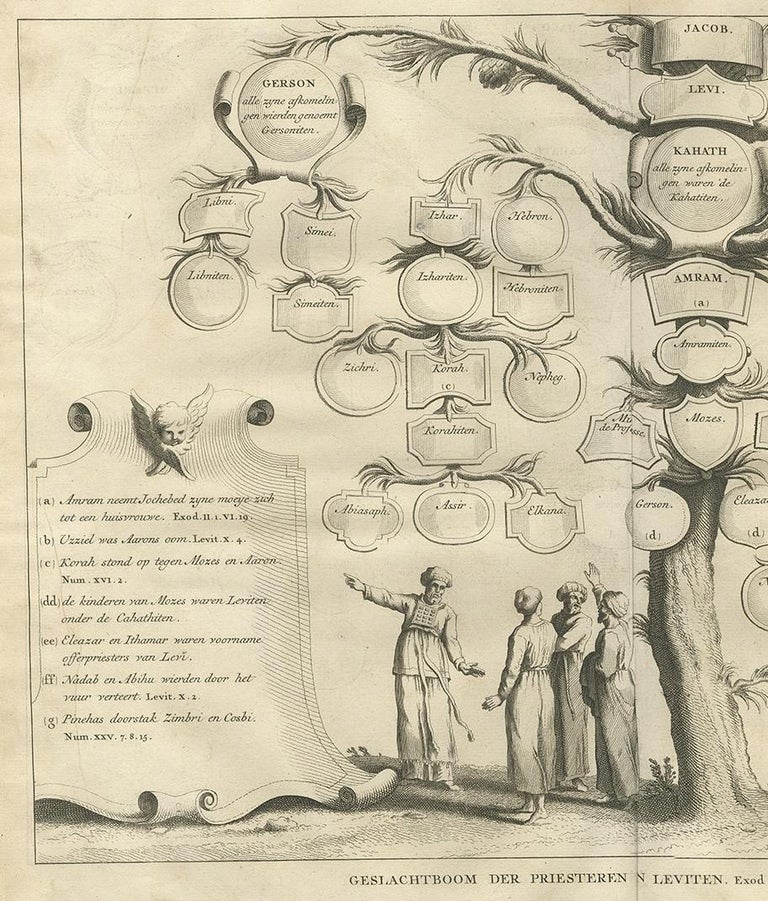 JACOB.
LEVI.
GERSON
alle zyne afkomelin-
gen wierden genoemt
Gersoniten.
KAHATH
alle zyne afkomelin-
gen waren de
Kahatiten.
Libni.
Simei.
Izhar.
Hebron.
Libniten.
Simeiten.
Izhariten.
Hebroniten.
AMRAM.
(a)
Amramiten.
Zichri.
Korah.
(c)
Nepheg.
Korahiten.
de
Mozes.
Abiasaph.
Assir.
Elkana.
Gerson.
(d)
Eleaza
(d)
(a) Amram neemt Jochebed zyne moeye zich
tot een huisvrouwe. Exod. II. 1. VI. 19.
(b) Uzziel was Aarons oom. Levit. X. 4.
(c) Korah stond op tegen Mozes en Aaron.
Num. XVI. 2.
(dd) de kinderen van Mozes waren Leviten
onder de Cahathiten.
(ee) Eleazar en Ithamar waren voorname
offerpriesters van Levi.
(ff) Nadab en Abihu wierden door het
vuur verteert. Levit. X. 2.
(g) Pinehas doorstak Zimbri en Cosbi.
Num. XXV. 7. 8. 15.
GESLACHTBOOM DER PRIESTEREN N LEVITEN. Exod